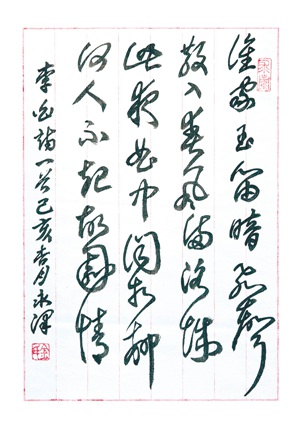 谁家玉笛暗飞声
散入春风满洛城
此夜曲中闻折柳
何人不起故园情
李白诗一首己亥春月永泽